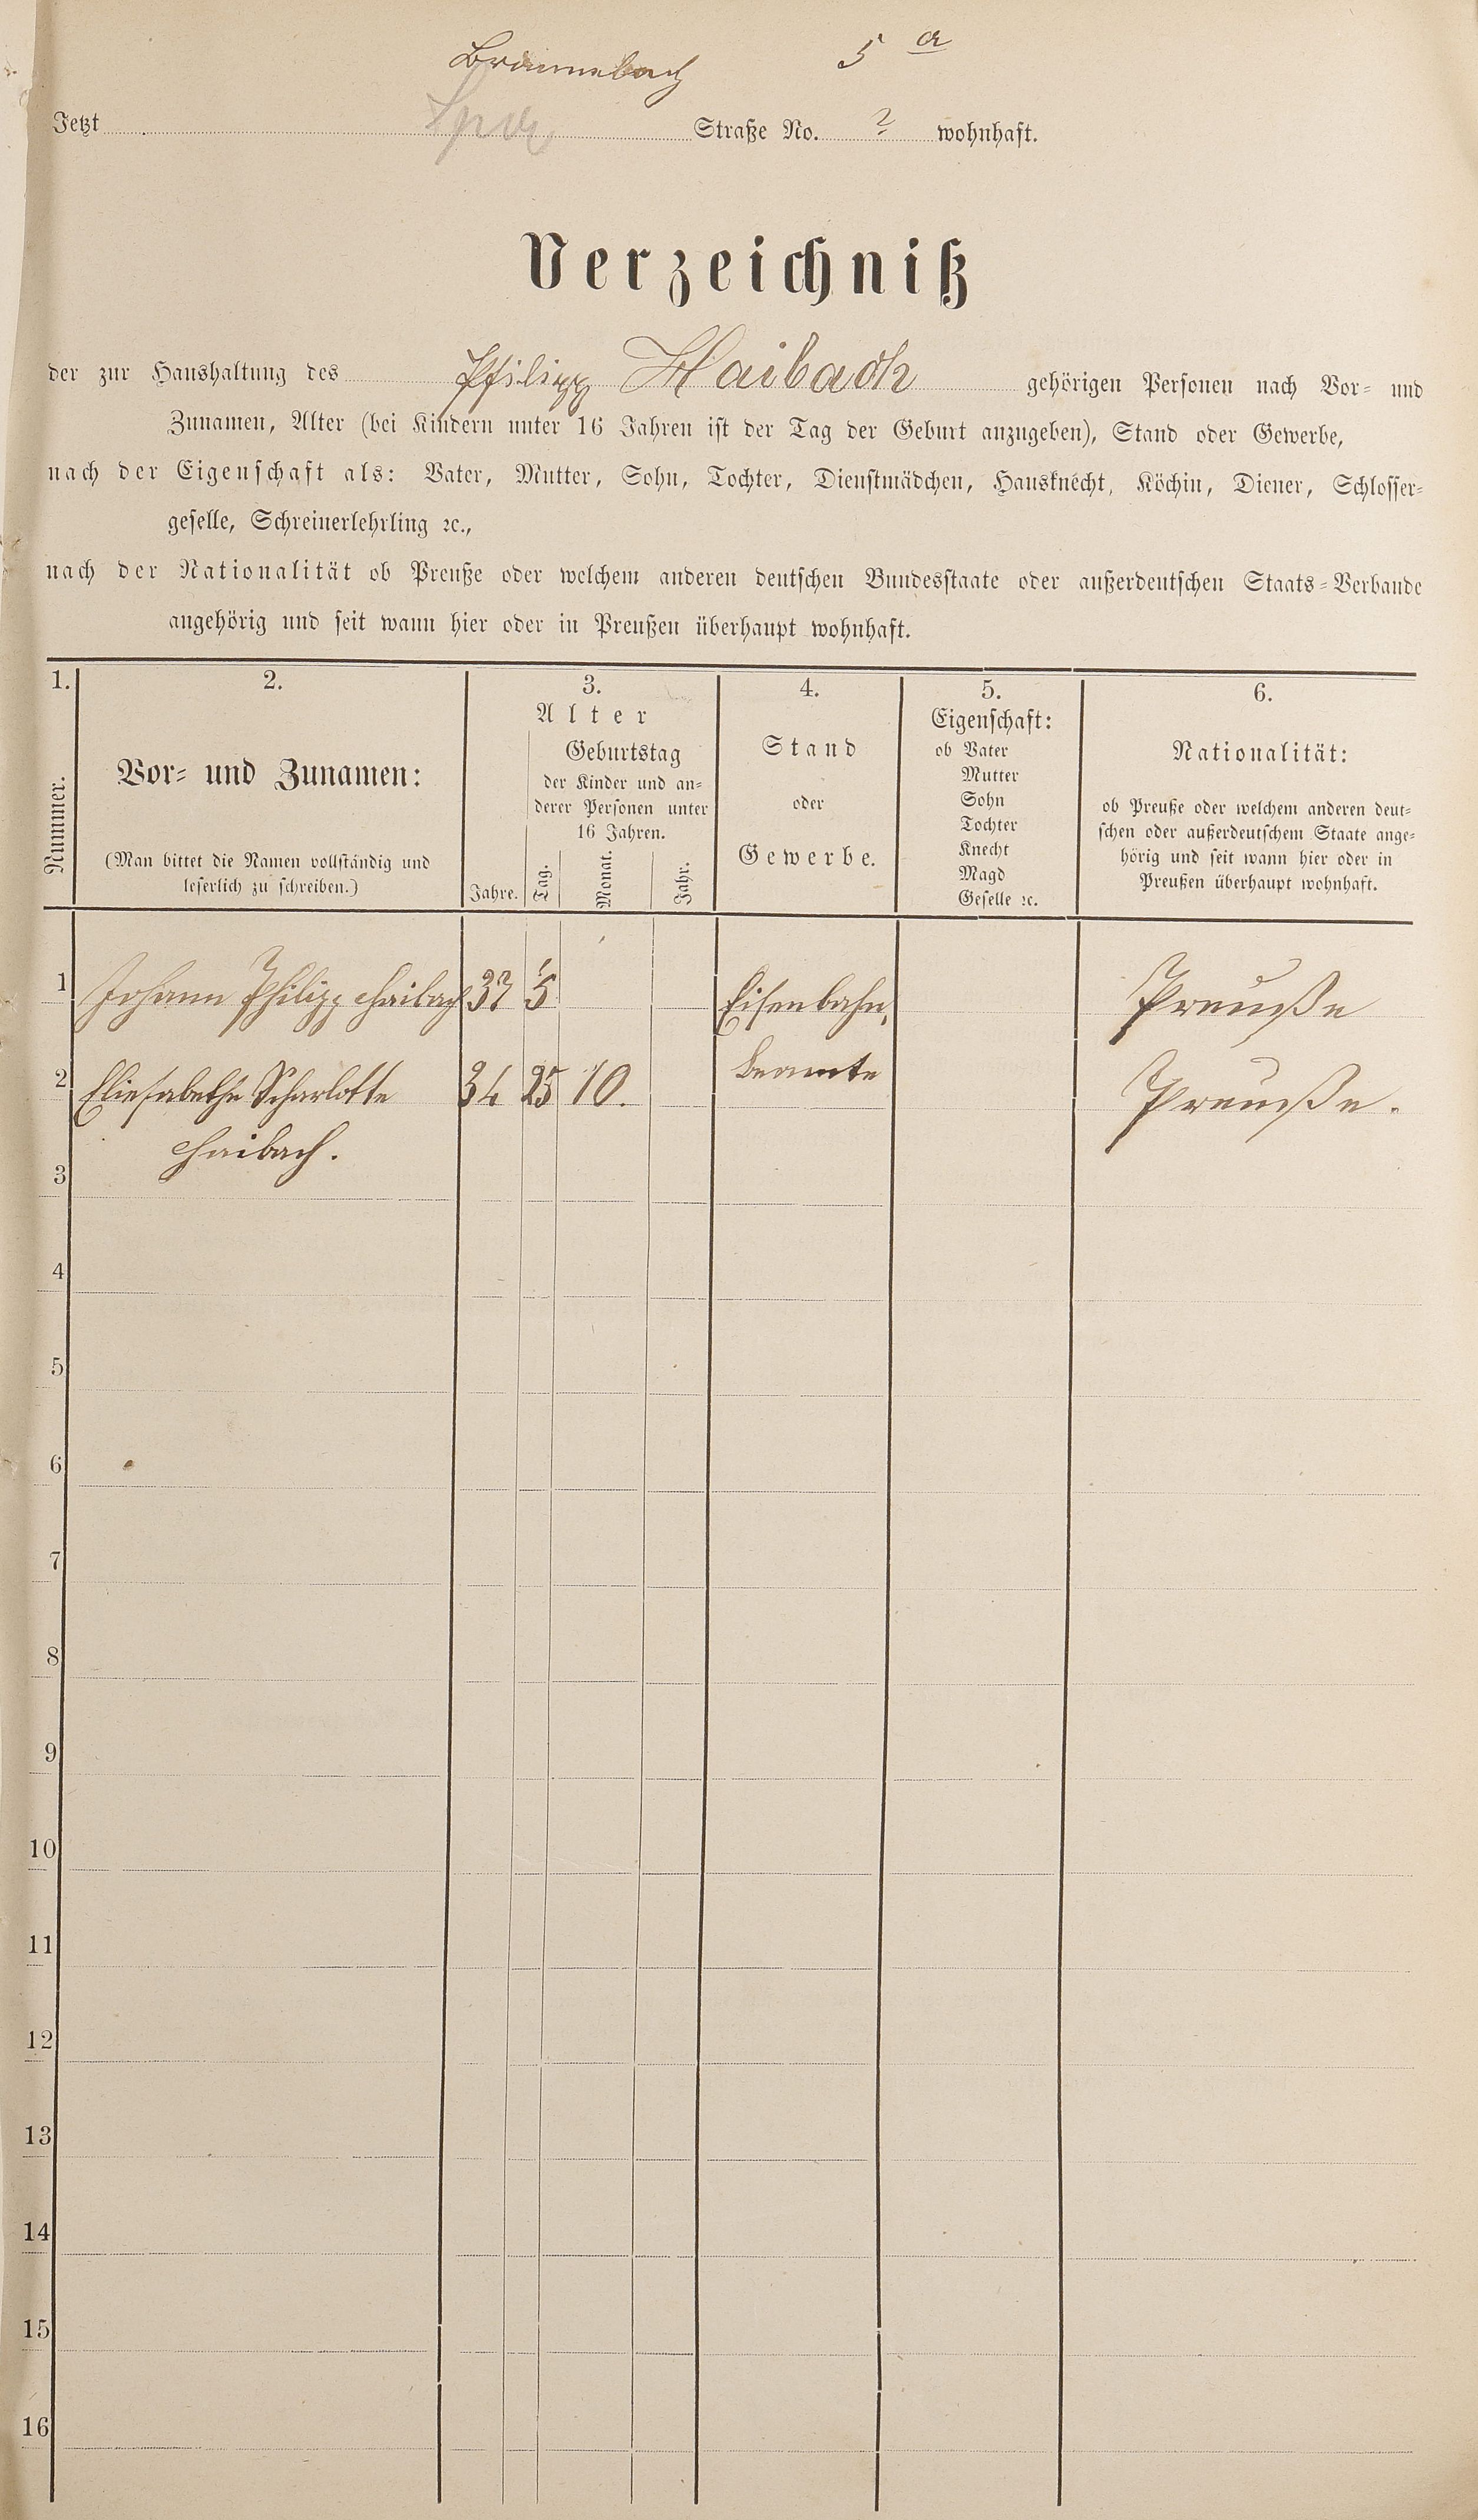 5 a
Jetzt Straße No. 2 wohnhaft.
Verzeichniß
der zur Haushaltung des Philipp Haibach gehörigen Personen nach Vor- und
Zunamen, Alter (bei Kindern unter 16 Jahren ist der Tag der Geburt anzugeben), Stand oder Gewerbe,
nach der Eigenschaft als: Vater, Mutter, Sohn, Tochter, Dienstmädchen, Hausknecht, Köchin, Diener, Schlosser-
geselle, Schreinerlehrling ꝛc.,
nach der Nationalität ob Preuße oder welchem anderen deutschen Bundesstaate oder außerdeutschen Staats-Verbande
angehörig und seit wann hier oder in Preußen überhaupt wohnhaft.
1. 2. 3. 4. 5. 6.
Nummer.
Vor- und Zunamen:
(Man bittet die Namen vollständig und
leserlich zu schreiben.)
Alter
Jahre.
Geburtstag
der Kinder und an-
derer Personen unter
16 Jahren.
Tag. Monat. Jahr.
Stand
oder
Gewerbe.
Eigenschaft:
ob Vater
Mutter
Sohn
Tochter
Knecht
Magd
Geselle ꝛc.
Nationalität:
ob Preuße oder welchem anderen deut-
schen oder außerdeutschem Staate ange-
hörig und seit wann hier oder in
Preußen überhaupt wohnhaft.
1 Johann Philipp Haibach 37 5 Eisenbahn, Preuße
beamte
2 Eliesabethe Scharlotte 34 25 10. Preuße.
Haibach.
3
4
5
6
7
8
9
10
11
12
13
14
15
16